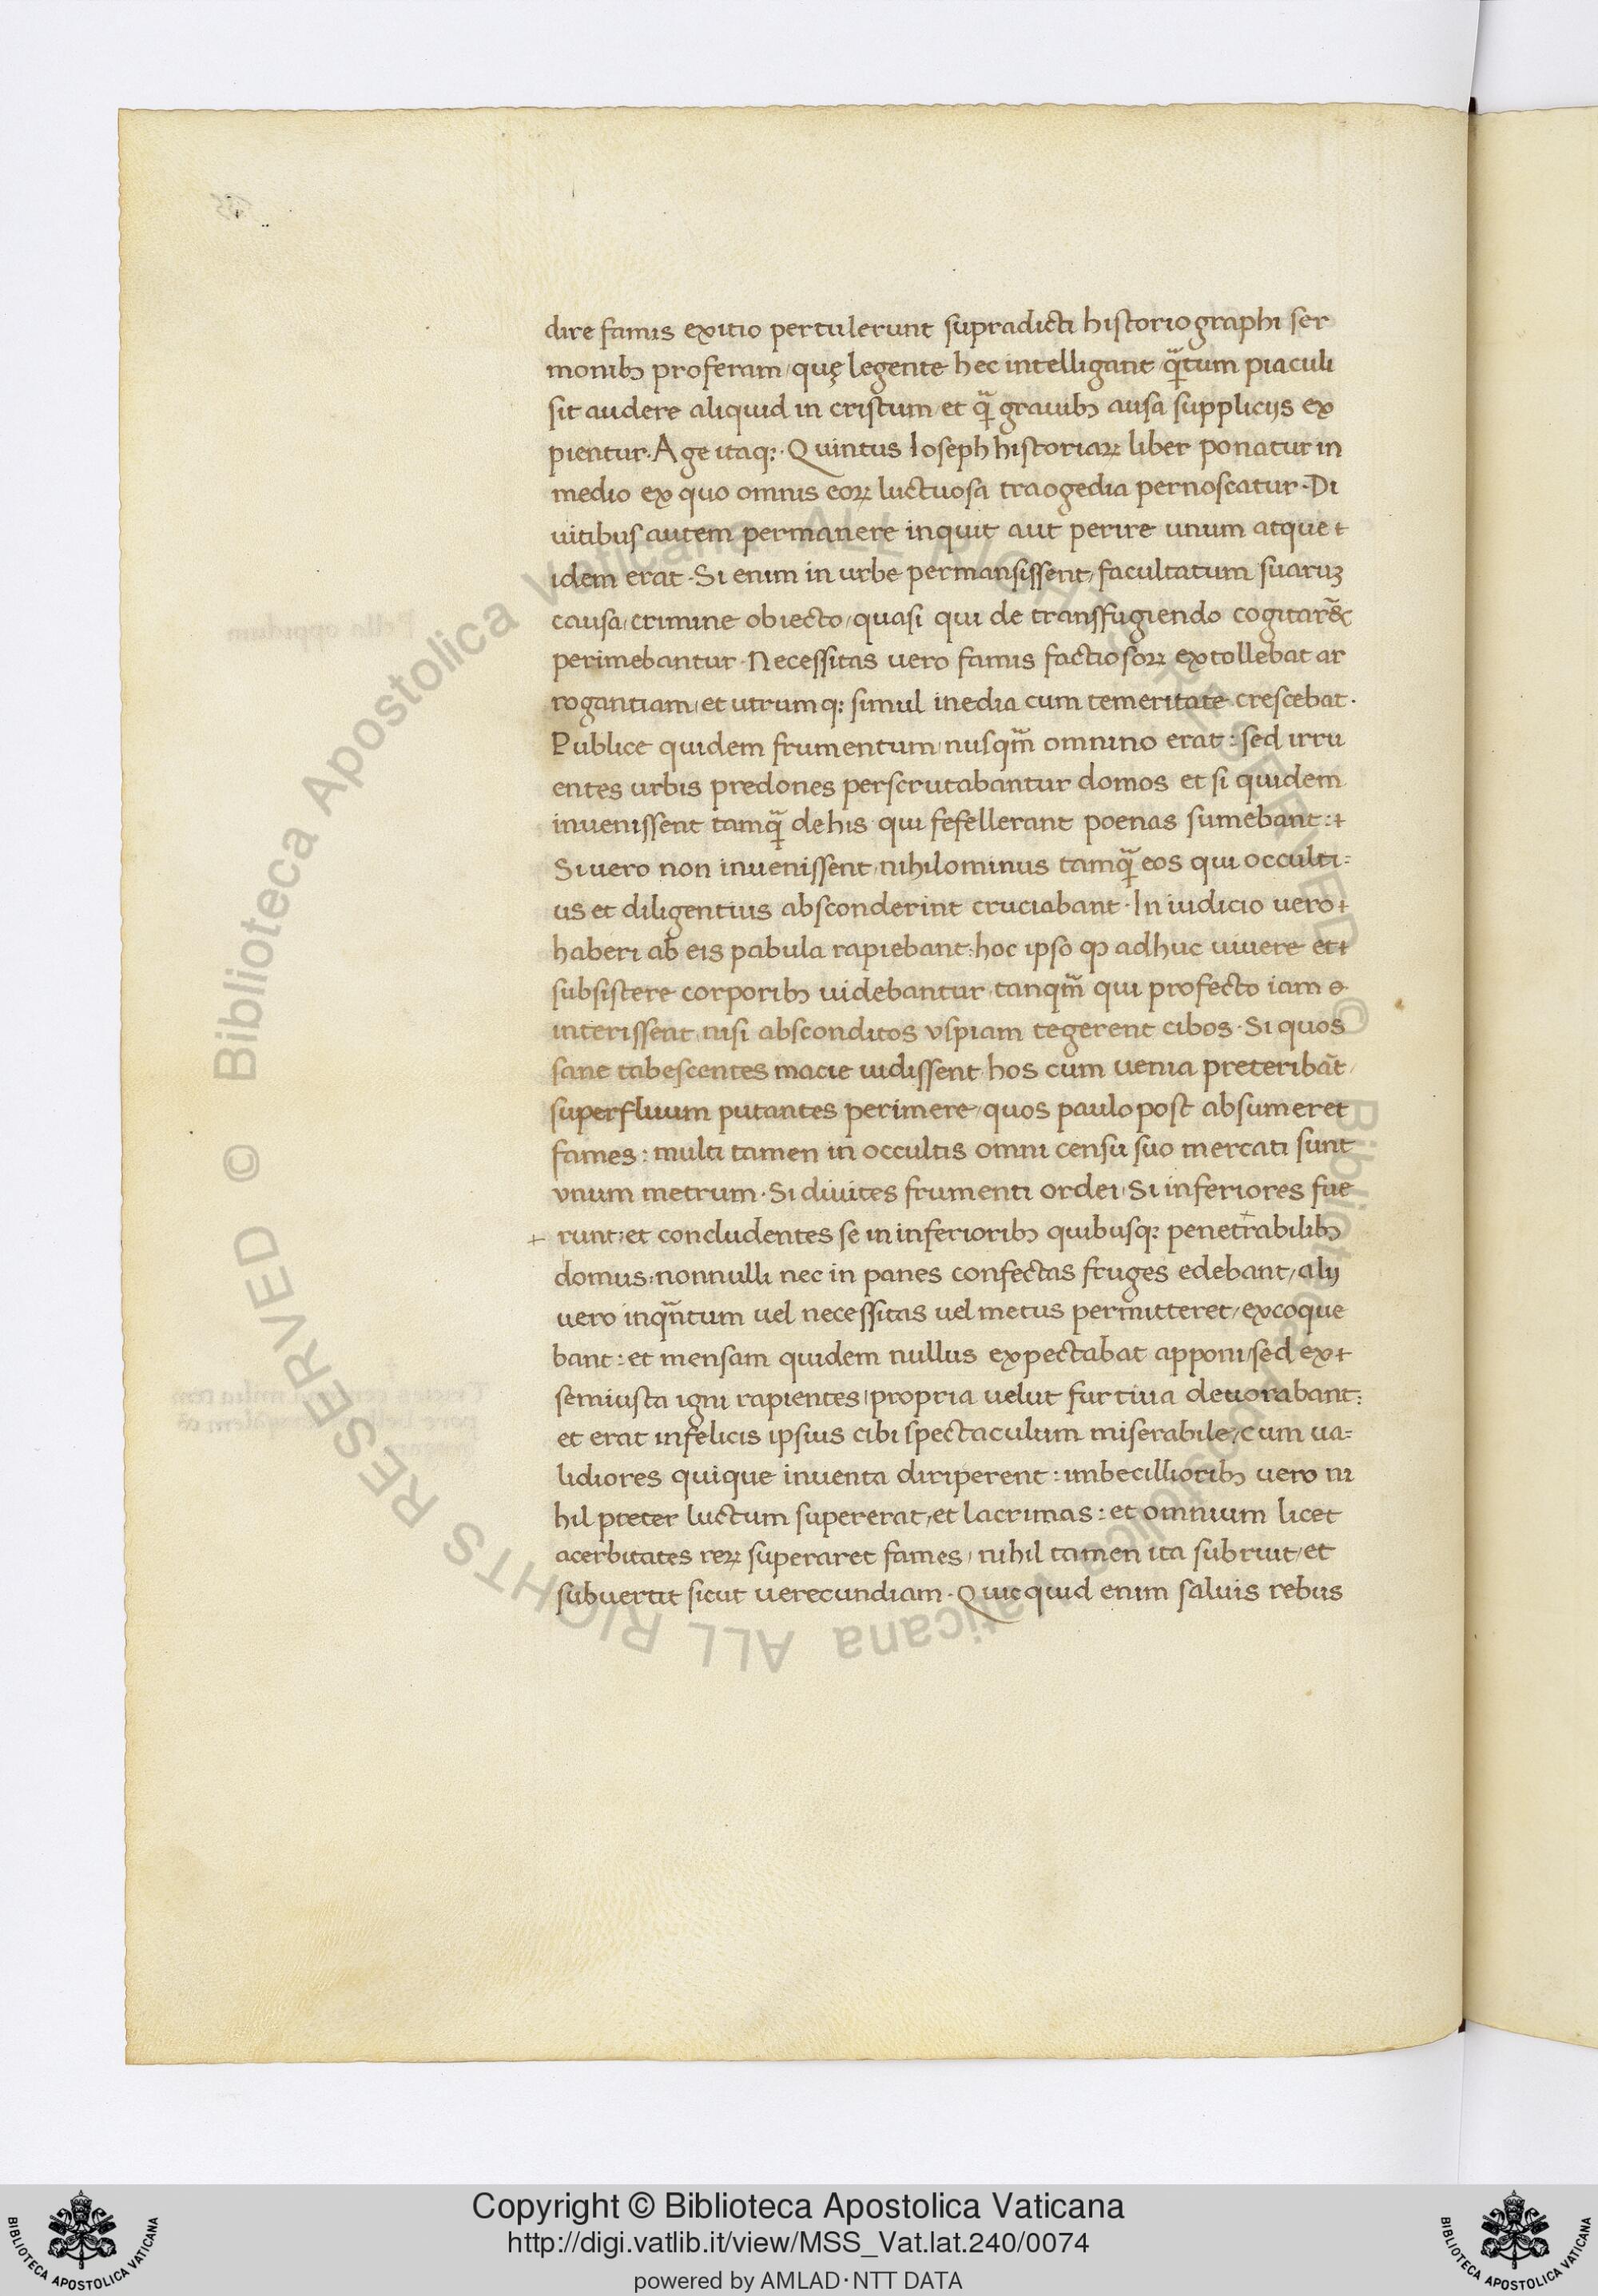 dire famis exitio pertulerunt supradicti historiographi ser
monibꝫ proferam, quę legente hec intelligant, qᷓtum piaculi
sit audere aliquid in cristum, et qᷓ grauibꝫ ausa supplicijs ex
pientur. Age itaqꝫ. Quintus Ioseph historiaꝝ liber ponatur in
medio ex quo omnis eoꝝ luctuosa traogedia pernoscatur. Di
uitibus autem permanere inquit aut perire unum atque
idem erat. Si enim in urbe permansissent, facultatum suaruꝫ
causa, crimine obiecto, quasi qui de transfugiendo cogitar&̄
perimebantur. Necessitas uero famis factiosoꝝ extollebat ar
rogantiam, et utrumqꝫ simul inedia cum temeritate crescebat.
Publice quidem frumentum nusqm̄ omnino erat: sed irru
entes urbis predones perscrutabantur domos et si quidem
inuenissent tamqᷓ de his qui fefellerant poenas sumebant:
Si uero non inuenissent, nihilominus tamqᷓ eos qui occulti=
us et diligentius absconderint cruciabant. In iudicio uero
haberi ab eis pabula rapiebant: hoc ipso ꝙ adhuc uiuere et
subsistere corporibꝫ uidebantur, tanqm̄ qui profecto iam e
interissent, nisi absconditos vspiam tegerent cibos. Si quos
sane tabescentes macie uidissent, hos cum uenia preteribāt,
superfluum putantes perimere, quos paulo post absumeret
fames: multi tamen in occultis omni censu suo mercati sunt
vnum metrum. Si diuites frumenti ordei, Si inferiores fue
+ runt: et concludentes se in inferioribꝫ quibusqꝫ penetrabilibꝫ
domus: nonnulli nec in panes confectas fruges edebant, alij
uero inqᷓntum uel necessitas uel metus permitteret, excoque
bant: et mensam quidem nullus expectabat apponi, sed ex
semiusta igni rapientes, propria uelut furtiua deuorabant:
et erat infelicis ipsius cibi spectaculum miserabile, cum ua=
lidiores quique inuenta diriperent: imbecillioribꝫ uero ni
hil preter luctum supererat, et lacrimas: et omnium licet
acerbitates reꝝ superaret fames, nihil tamen ita subruit, et
subuertit sicut uerecundiam. Quicquid enim saluis rebus
© Biblioteca Apostolica Vaticana ALL RIGHTS RESERVED
© Biblioteca Apostolica Vaticana ALL RIGHTS RESERVED
Copyright © Biblioteca Apostolica Vaticana
http://digi.vatlib.it/view/MSS_Vat.lat.240/0074
powered by AMLAD·NTT DATA
BIBLIOTECA APOSTOLICA VATICANA
BIBLIOTECA APOSTOLICA VATICANA